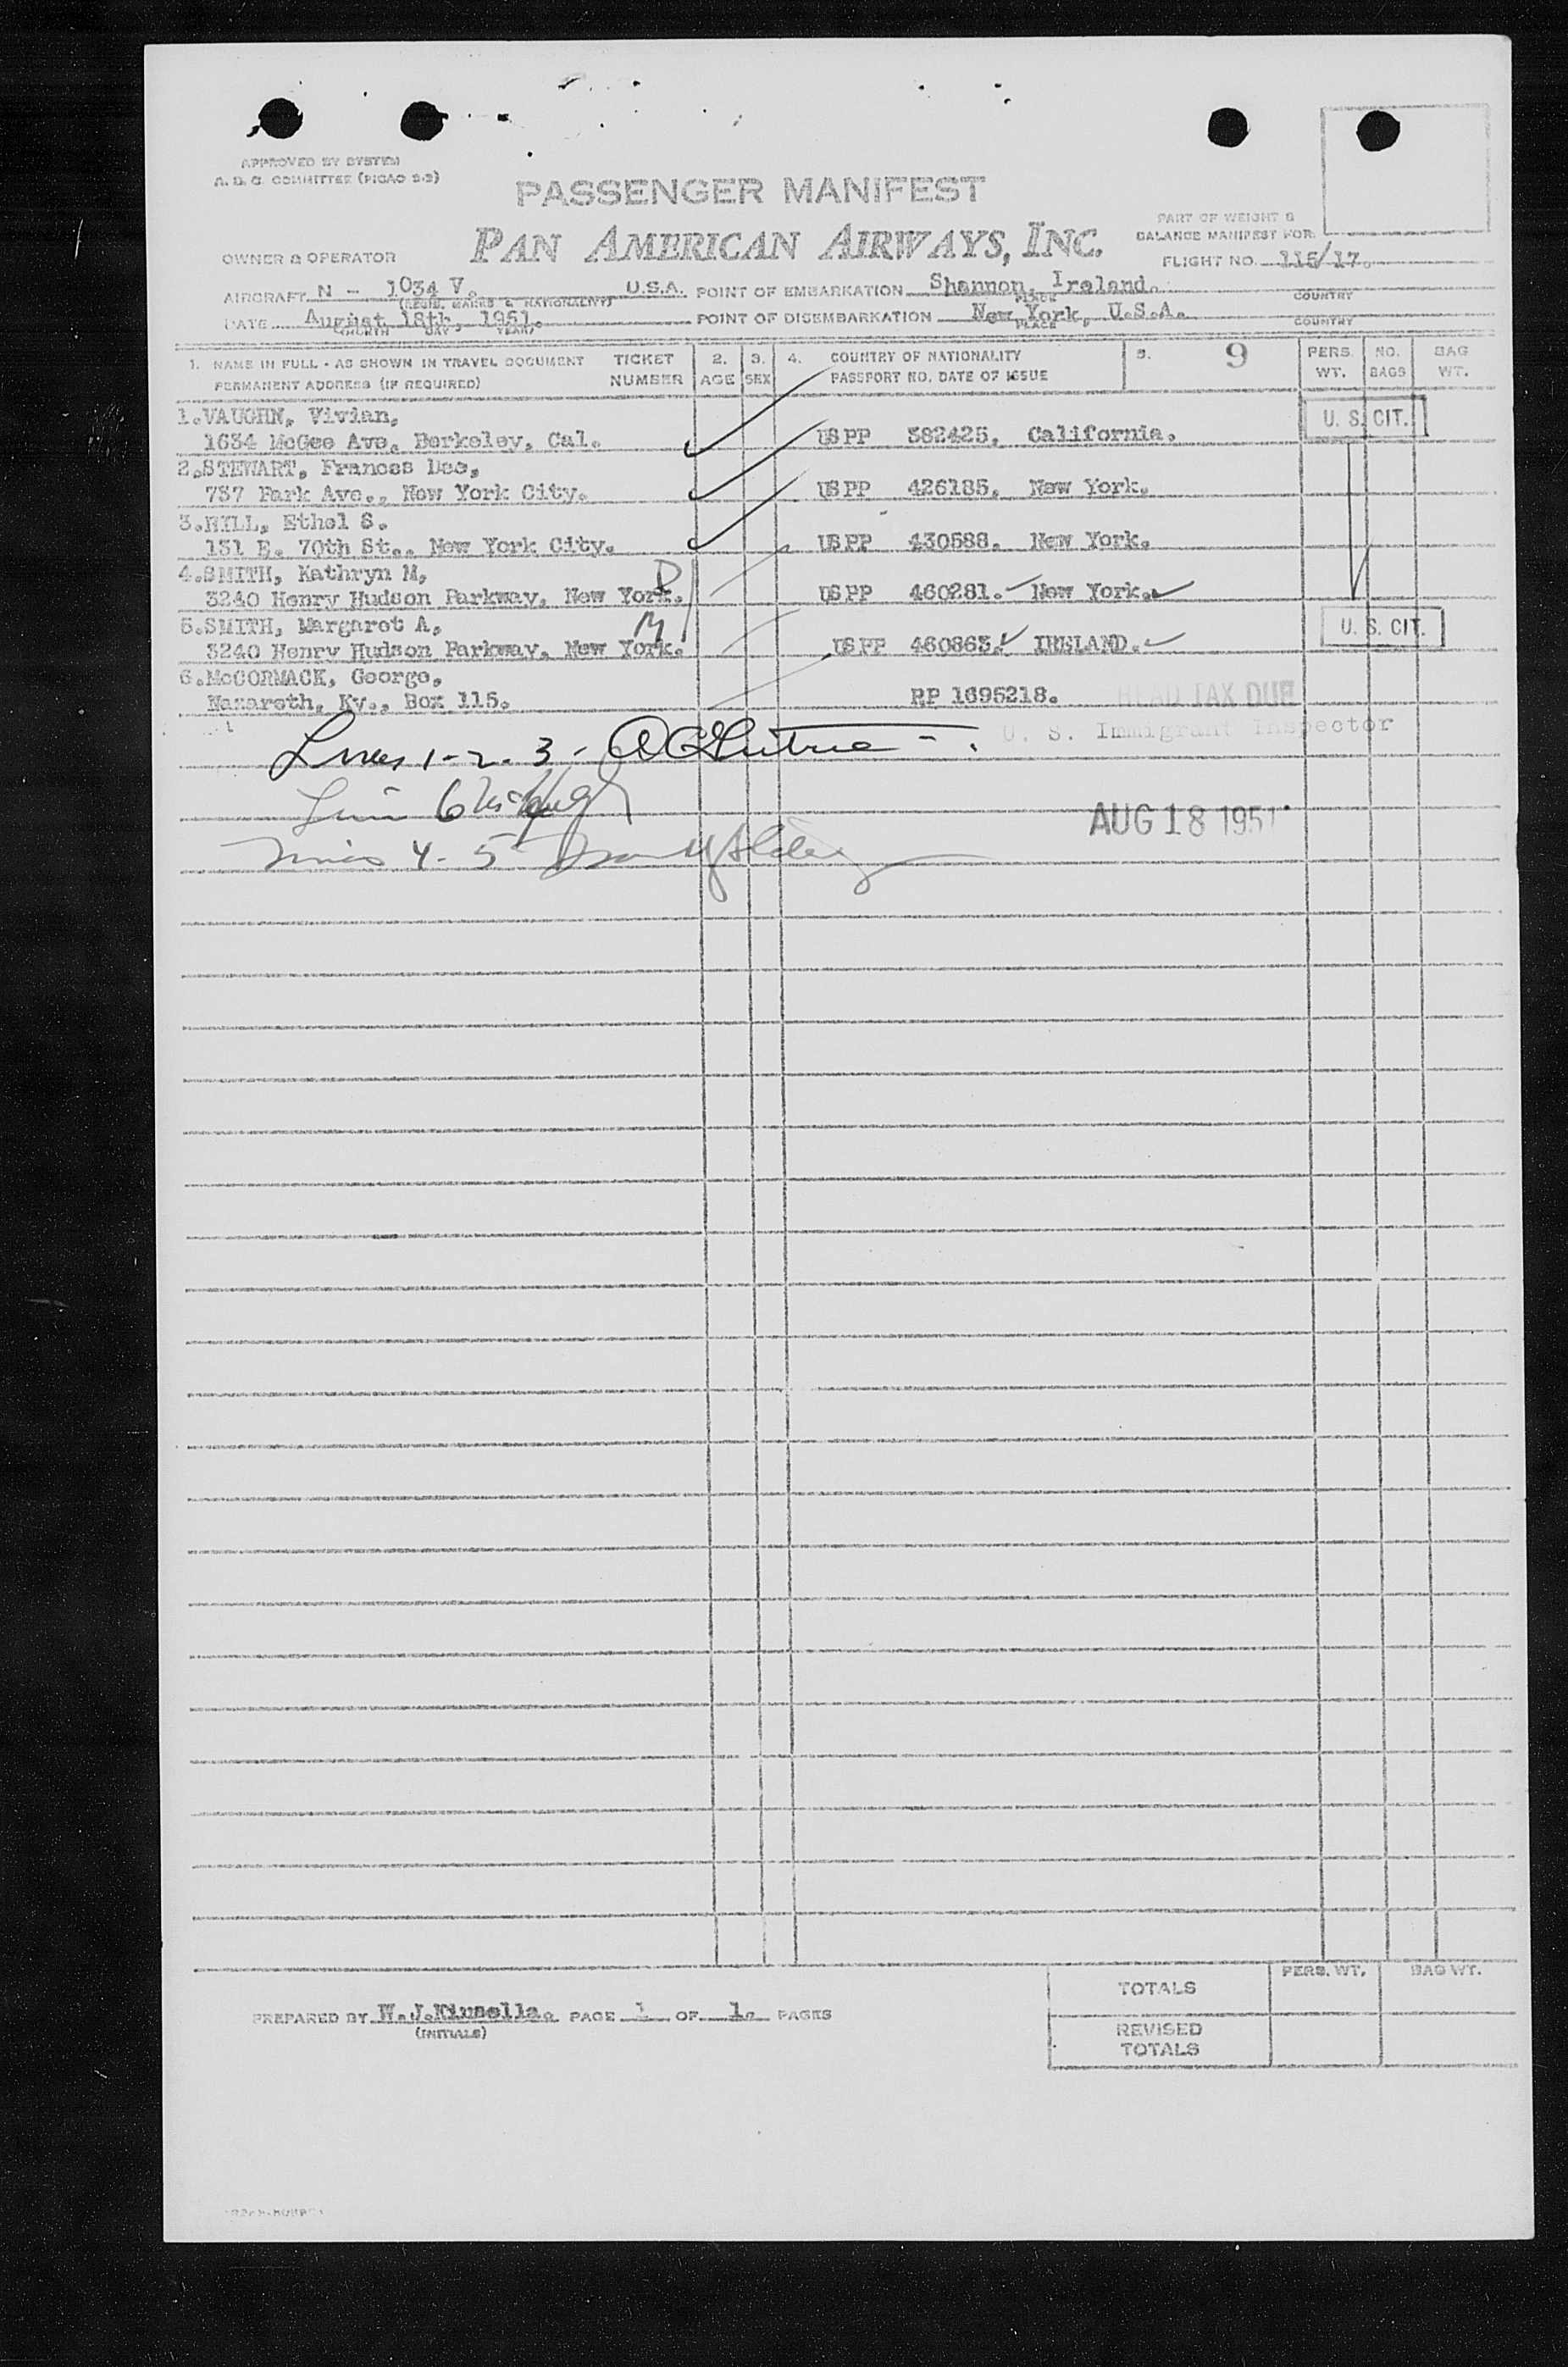 APPROVED BY SYSTEM
A. D. C. COMMITTEE (PICAO 2-3)
PASSENGER MANIFEST
PART OF WEIGHT &
BALANCE MANIFEST FOR:
OWNER & OPERATOR PAN AMERICAN AIRWAYS, INC.
FLIGHT NO. 115/17.
AIRCRAFT N - 1034 V. U.S.A. POINT OF EMBARKATION Shannon, Ireland.
(REGIS. MARKS & NATIONALITY) PLACE COUNTRY
DATE August 18th, 1951. POINT OF DISEMBARKATION New York, U.S.A.
MONTH DAY YEAR PLACE COUNTRY
1. NAME IN FULL - AS SHOWN IN TRAVEL DOCUMENT TICKET 2. 3. 4. COUNTRY OF NATIONALITY 5. 9 PERS. NO. BAG
PERMANENT ADDRESS (IF REQUIRED) NUMBER AGE SEX PASSPORT NO. DATE OF ISSUE WT. BAGS WT.
1.VAUGHN, Vivian,
1634 McGee Ave, Berkeley, Cal. USPP 382425. California. U. S. CIT.
2.STEWART, Frances Dee,
737 Park Ave., New York City. USPP 426185. New York.
3.HILL, Ethel S.
131 E. 70th St., New York City. USPP 430588. New York.
4.SMITH, Kathryn M,
3240 Henry Hudson Parkway, New York. D USPP 460281. New York.
5.SMITH, Margaret A,
3240 Henry Hudson Parkway, New York. M USPP 460863. IRELAND. U. S. CIT.
6.McCORMACK, George,
Nazareth, Ky., Box 115. RP 1695218. HEAD TAX DUE
U. S. Immigrant Inspector
Lines 1-2-3-
Line 6
AUG 18 1951
Lines 4-5
TOTALS PERS. WT. BAG WT.
PREPARED BY W.J.Kinsella. PAGE 1 OF 1. PAGES
(INITIALS)
REVISED
TOTALS